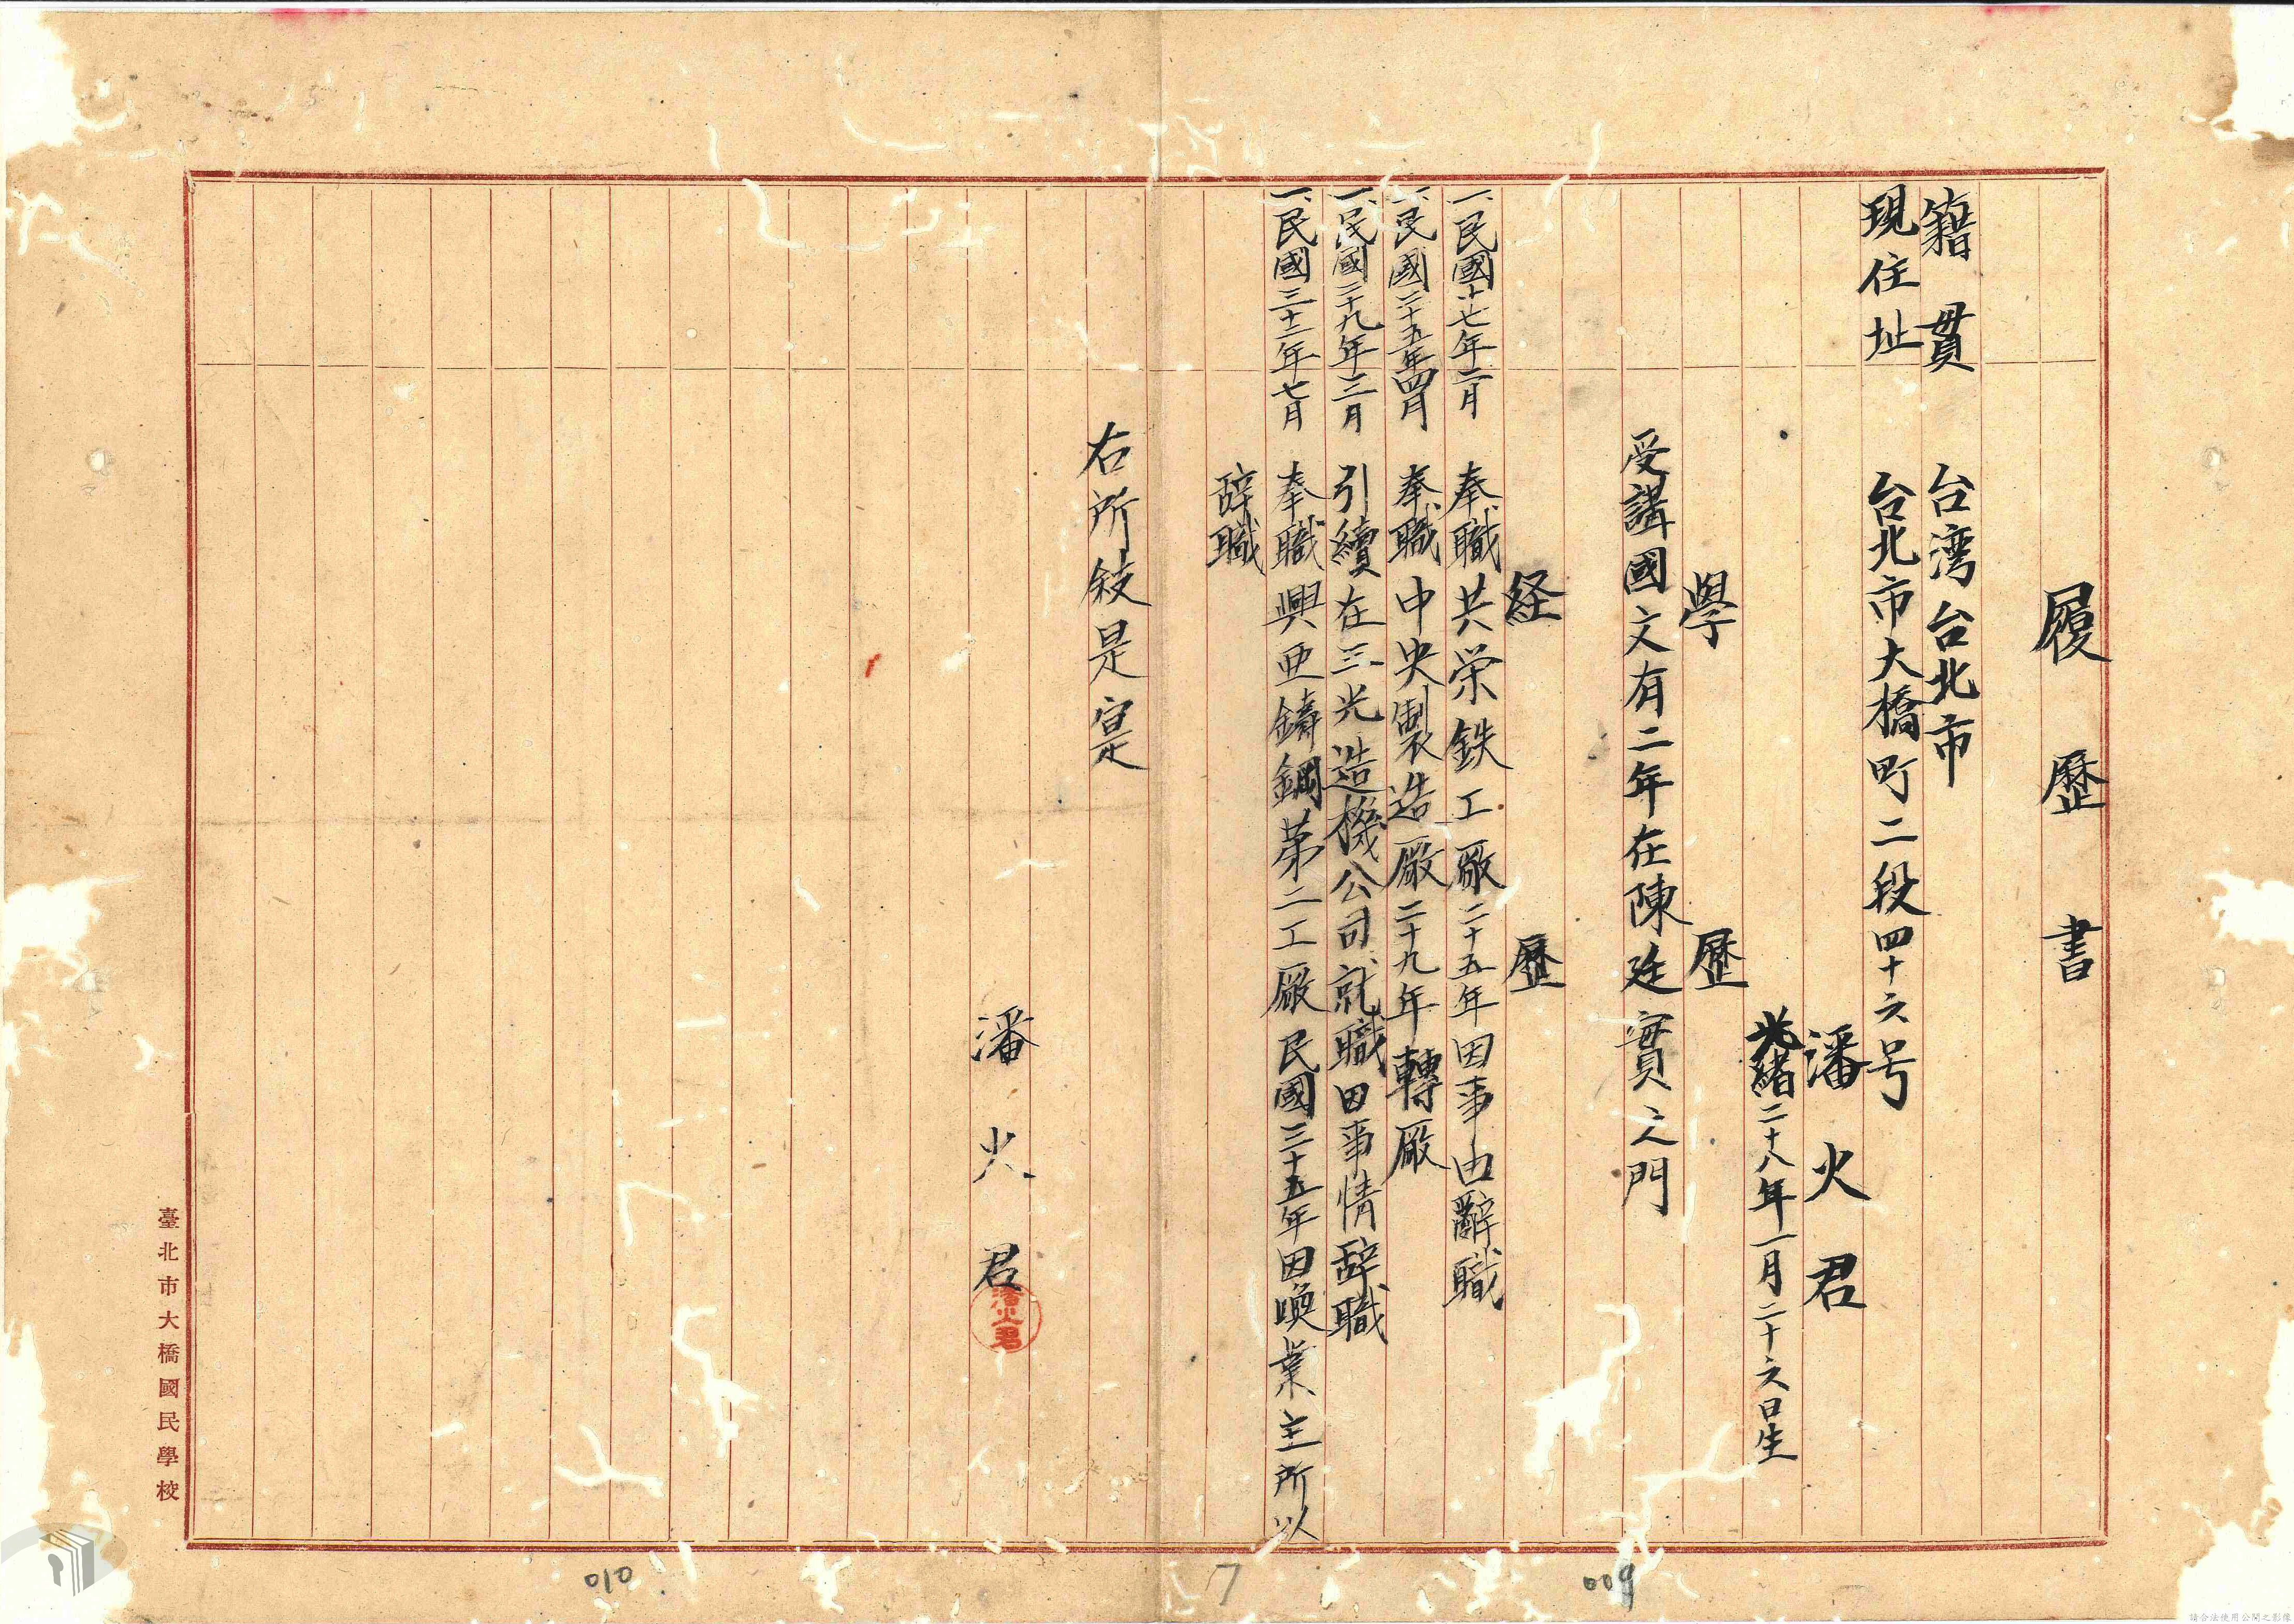 履歷書
籍貫 台湾台北市
現住址 台北市大橋町二段四十六号
潘火君
光緒二十八年一月二十六日生
學歷
受講國文有二年在陳廷實之門
経歷
一、民國十七年二月 奉職共栄鉄工廠二十五年因事由辭職
一、民國二十五年四月 奉職中央製造廠二十九年轉廠
一、民國二十九年三月 引續在三光造機公司就職因事情辞職
一、民國三十二年七月 奉職興亜鑄鋼第二工廠民國三十五年因喚業主所以
辞職
右所敍是寔
潘火君
潘火君
臺北市大橋國民學校
010
7
009
請合法使用公開之影像